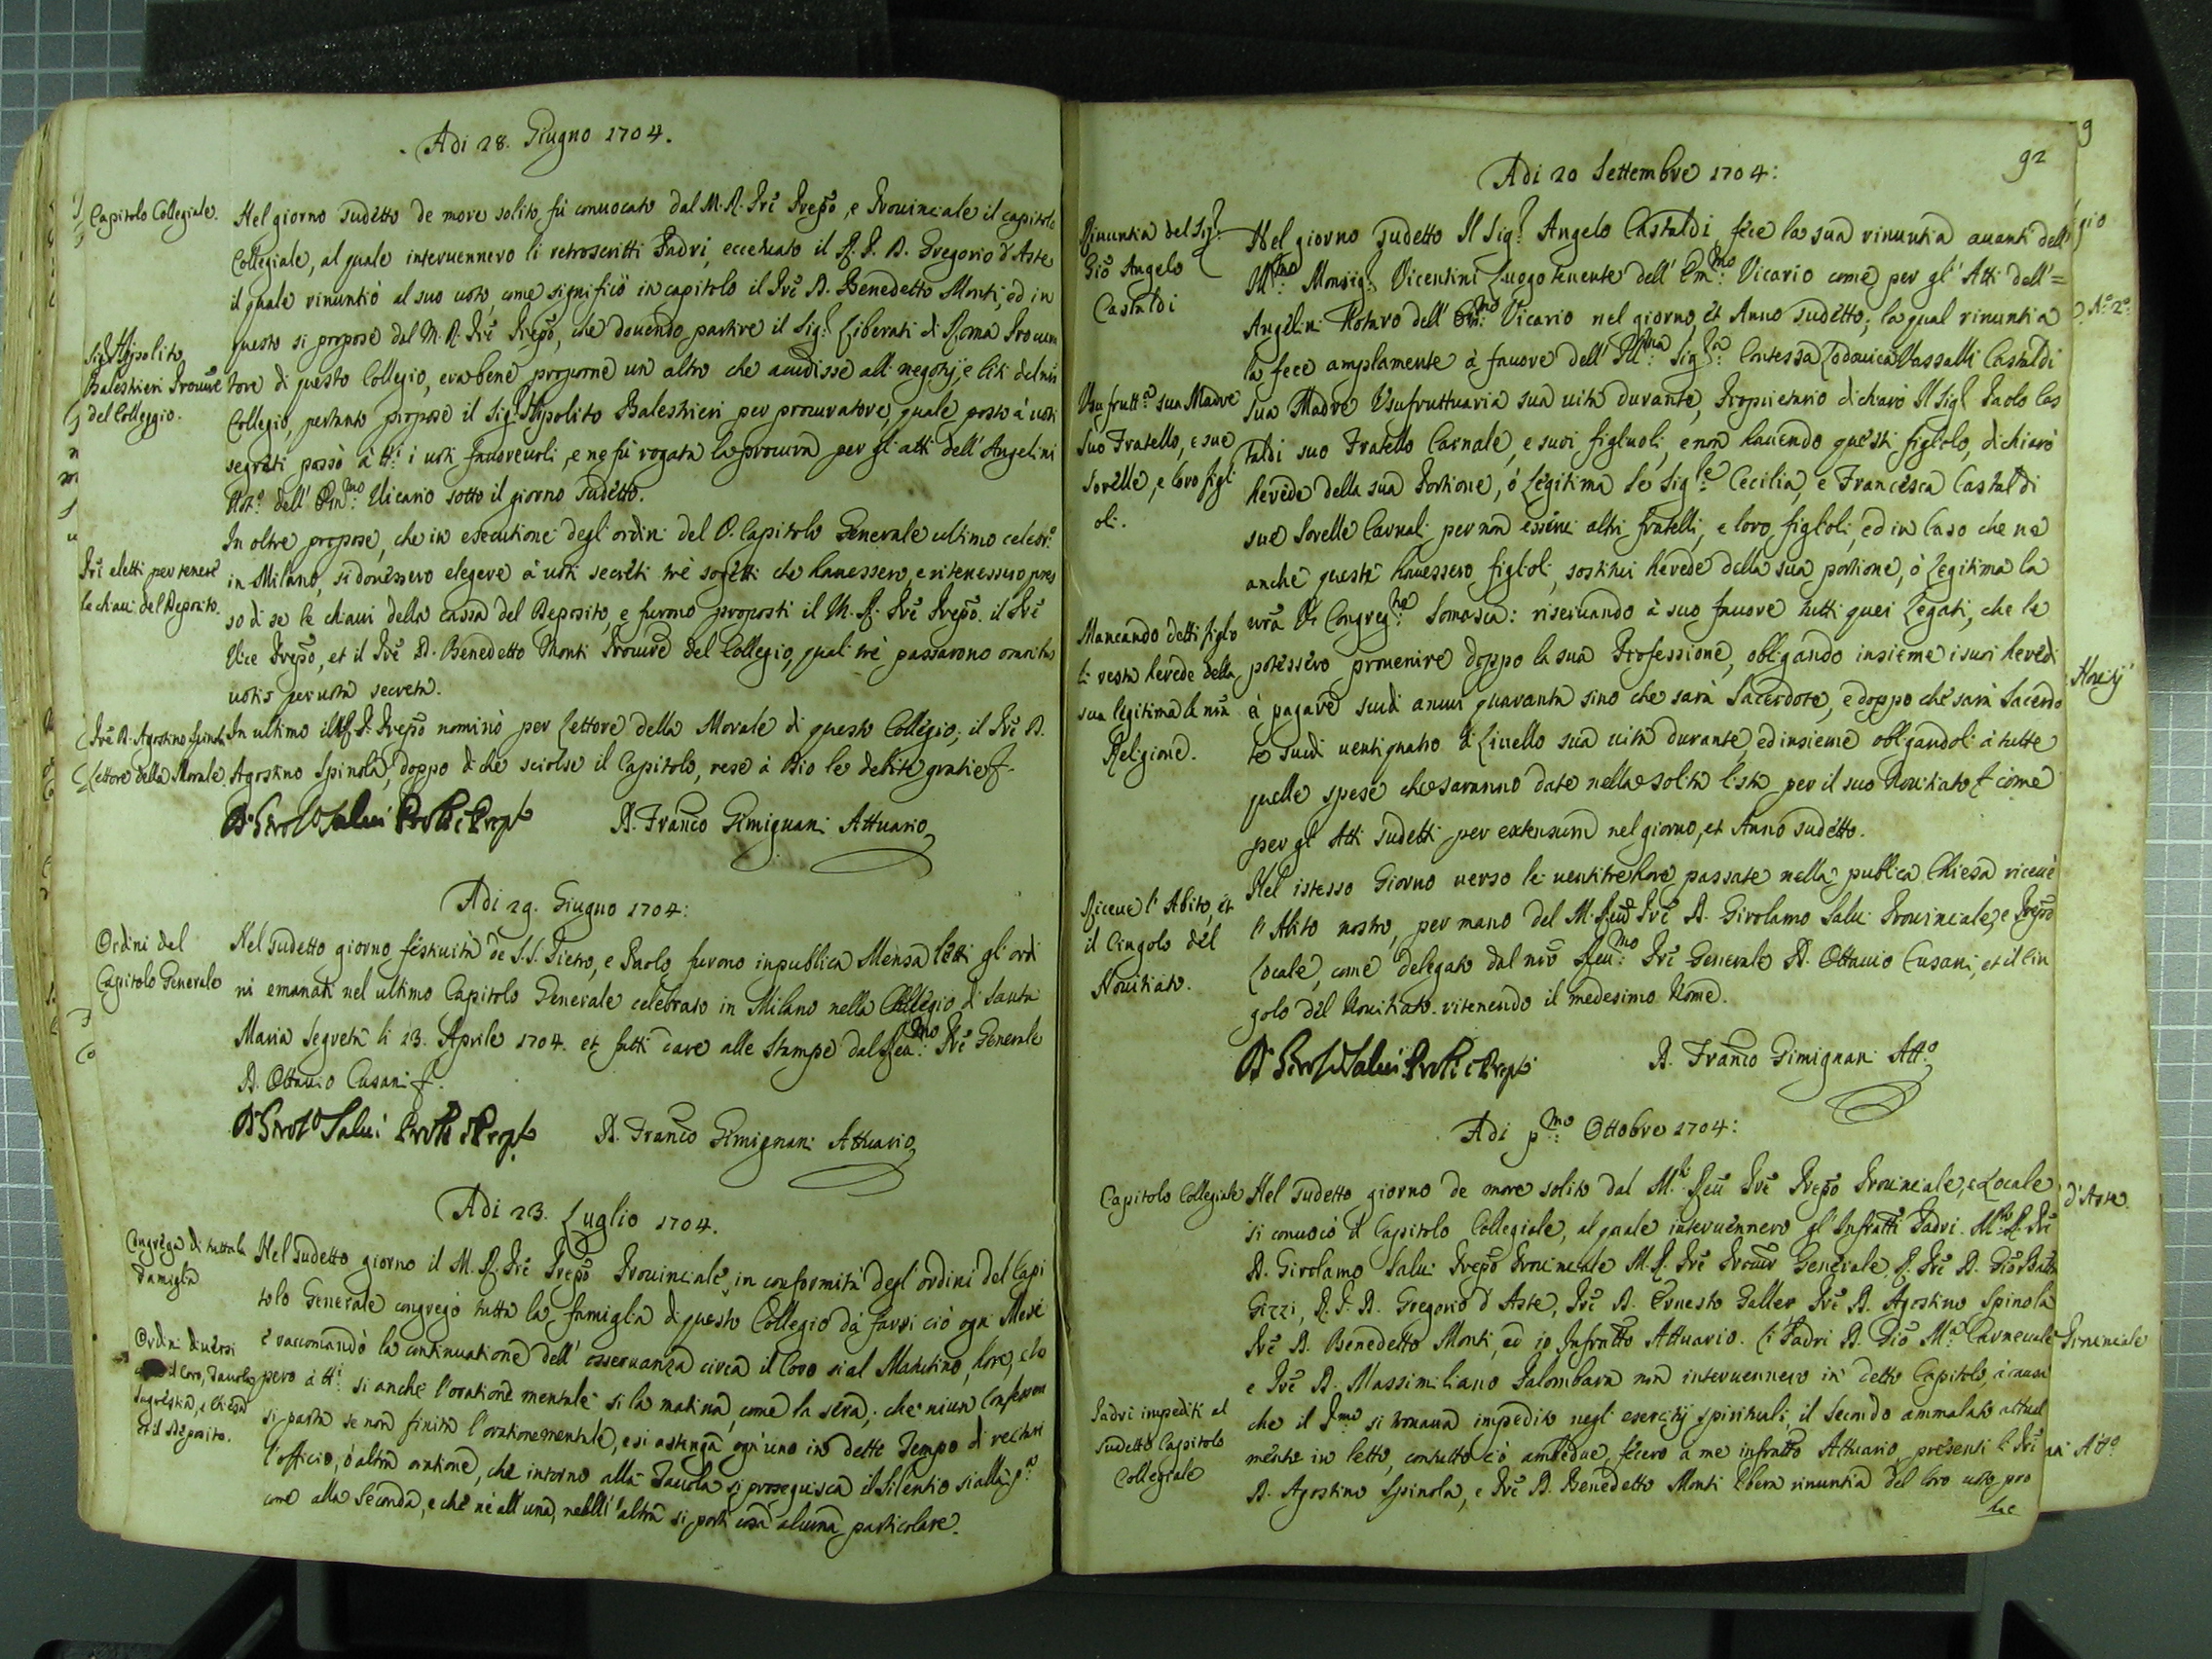 Adi 28. Giugno 1704.
Capitolo Collegiale.
Nel giorno sudetto de more solito, fù conuocato dal M. R. Prē Prepō, e Prouinciale il capitolo
Collegiale, al quale interuennero li retroscritti Padri, eccettuato il R. P. D. Gregorio d'Aste
il quale rinuntiò al suo uoto, come significò in capitolo il Prē D. Benedetto Monti, ed in
questo si propose dal M. R. Prē Prepō, che douendo partire il Sig.r Liberati di Roma Procura
Sig.r Hipolito
Balestrieri Procure
del Colleggio.
tore di questo Collegio, era bene proporne un altro che accudisse alli negotij, e liti del nrō
Collegio, pertanto propose il Sig.r Hipolito Balestrieri per procuratore, quale posto à uoti
segreti passò à tt.i i uoti fauoreuoli, e ne fù rogata la procura per gl'atti dell'Angelini
Not.o dell'Em.mo Vicario sotto il giorno sudetto.
In oltre propose, che in esecutione degl'ordini del V. Capitolo Generale ultimo celebr.o
Pri eletti per tenere
le chiaui del Deposito.
in Milano, si douessero elegere à uoti secreti trè sogetti che hauessero, e ritenessero pres
so di se le chiaui della cassa del Deposito, e furono proposti il M. R. Prē Prepō. il Prē
Vice Prepō, et il Prē D. Benedetto Monti Procurē del Collegio, quali trè passarono omnibus
uotis per uota secreta.
Prē D. Agostino Spinola
Lettore della Morale.
In ultimo il M. R. P. Prepō nominò per Lettore della Morale di questo Collegio, il Prē D.
Agostino Spinola, doppo di che sciolse il Capitolo, rese à Dio le debite gratie
D. Girol.o Salui Pro.le e Prep.to
D. Franco Gimignani Attuario
Adi 29. Giugno 1704:
Ordini del
Capitolo Generale
Nel sudetto giorno festiuità de S.S. Pietro, e Paolo, furono in publica Mensa letti gl'ordi
ni emanati nel ultimo Capitolo Generale celebrato in Milano nella Collegio di Santa
Maria Segreta li 13. Aprile 1704. et fatti dare alle stampe dal Reu.mo Prē Generale
D. Ottauio Cusani
D. Girol.o Salui Pro.le e Prep.to
D. Franco Gimignani Attuario
Adi 23. Luglio 1704.
Congrega di tutta la
Famiglia
Nel sudetto giorno il M. R. Prē Prepō Prouinciale, in conformità degl'ordini del Capi
tolo Generale congregò tutta la famiglia di questo Collegio da farsi ciò ogni Mese
Ordini diuersi
il Coro, Tauola
Sagrestia, e Chiesa
et il Deposito.
e raccomandò la continuatione dell'osseruanza circa il Coro si al Matutino, hore, e Ve
pero à tt.i si anche l'oratione mentale si la matina, come la sera, che niun Confessore
si parta se non finita l'oratione mentale, e si astenga ogn'uno in dette Tempo di recitare
l'officio, ò altra oratione, che intorno alla Tauola si proseguisca il silentio si alla p.a
come alla seconda, e che nè all'una, ne all'altra si porti cosa alcuna particolare.
92
Adi 20 Settembre 1704:
Rinuntia del Sig.r
Gio Angelo
Castaldi
Nel giorno sudetto Il Sig.r Angelo Castaldi fece la sua rinuntia auanti dell'
Ill.mo Monsig.r Vicentini Luogo tenente dell'Em.mo Vicario come per gl'Atti dell'=
Angelini Notaro dell'Em.mo Vicario nel giorno, et Anno sudetto, la qual rinuntia
la fece amplamente à fauore dell'Ill.ma Sig.ra Contessa Lodouica Vassalli Castaldi
Vsufrutt.a sua Madre
suo Fratello, e sue
Sorelle, e loro figli
oli.
sua Madre Vsufruttuaria sua uita durante, Proprietario dichiarò Il Sig.r Paolo Cas
taldi suo Fratello Carnale, e suoi figliuoli, e non hauendo questi figliolo, dichiarò
herede della sua Portione, ò Legitima le Sig.re Cecilia, e Francesca Castaldi
sue Sorelle Carnali per non esserui altri fratelli, e loro figlioli, ed in caso che ne
anche queste hauessero figlioli, sostitui herede della sua portione, ò Legitima la
nrā V. Congreg.ne Somasca: riseruando à suo fauore tutti quei Legati, che le
Mancando detti figlo
li resta herede della
sua legitima la nrā
Religione.
potessero prouenire doppo la sua Professione, obligando insieme i suoi heredi
à pagare scudi annui quaranta sino che sarà Sacerdote, e doppo che sarà Sacerdo
te scudi uentiquatro di Liuello sua uita durante, ed insieme obligandoli à tutte
quelle spese che saranno date nella solita lista per il suo Nouitiato come
per gl'Atti sudetti per extensum nel giorno, et Anno sudetto.
Riceue l'Abito, et
il Cingolo del
Nouitiato.
Nel istesso Giorno uerso le uentitre hore passate nella publica Chiesa riceuè
l'Abito nostro, per mano del M. Reu.do Prē D. Girolamo Salui Prouinciale, e Prepō
Locale, come delegato dal nrō Reu.mo Prē Generale D. Ottauio Cusani, et il Cin
golo del Nouitiato. ritenendo il medesimo Nome.
D. Girol.o Salui Pro.le e Prep.to
D. Franco Gimignani Att.o
Adi p.mo Ottobre 1704:
Capitolo Collegiale
Nel sudetto giorno de more solito dal M.to Reu Prē Prepō Prouinciale, e Locale
si conuocò il Capitolo Collegiale, al quale interuennero gl'Infratti Padri. M.to R. Prē
D. Girolamo Salui Prepō Prouinciale M. R. Prē Procur Generale, R. Prē D. Gio Batta
Gizzi, R. P. D. Gregorio d'Aste, Prē D. Ernesto Galler Prē D. Agostino Spinola
Prē D. Benedetto Monti, ed io Infratto Attuario. Li Padri D. Gio M.a Carneuale
e Prē D. Massimiliano Palombara non interuennero in detto Capitolo, à causa
Padri impediti al
sudetto Capitolo
Collegiale
che il P.mo si trouaua impedito negl'esercitij spirituali, il Secondo ammalato attual
mente in letto, contutto ciò ambedue, fecero à me infratto Attuario, presenti li Pri
D. Agostino Spinola, e Prē D. Benedetto Monti libera rinuntia del loro uoto pro
hac
gio
N.o 2.o
Nouitij
d'Aste
Prouinciale
Att.o